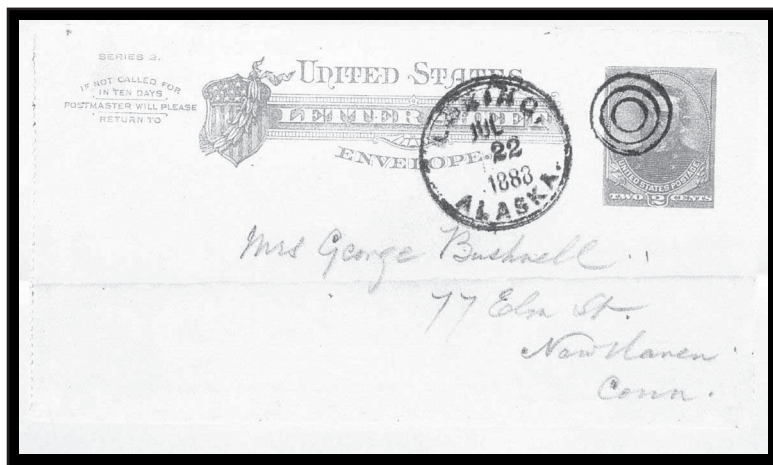 SERIES 2.
IF NOT CALLED FOR
IN TEN DAYS
POSTMASTER WILL PLEASE
RETURN TO
UNITED STATES
LETTER SHEET
ENVELOPE.
LORING,
JUL
22
1888
ALASKA.
UNITED STATES POSTAGE
TWO 2 CENTS
Mrs George Bushnell
77 Elm St.
New Haven
Conn.